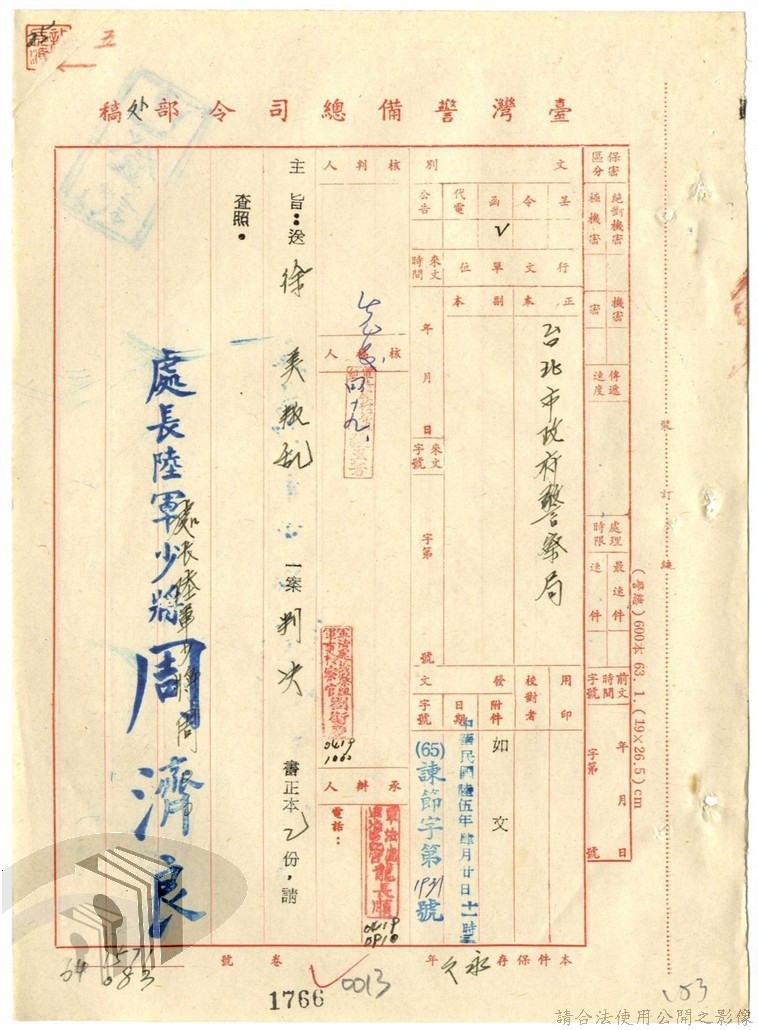 五
臺灣警備總司令部 處 稿
保密區分
絕對機密
極機密
機密
密
傳遞速度
處理時限
最速件
速件
前文時間字號
年 月 日
字第 號
文別
呈
令
函
V
代電
公告
行文單位
正本
副本
台北市政府警察局
來文時間
年 月 日
來文字號
字第 號
用印
校對者
發文
附件
如文
日期
中華民國陸伍年肆月廿日十一時
字號
(65)諫節字第1931號
核判人
核稿人
四.十九.
0419
1000
承辦人
電話：
0419
0910
主旨：送 徐 美叛乱 一案判決 書正本乙份，請
查照。
處長陸軍少將周
處長陸軍少將 周濟良
本件保存 永久 年
卷 號
1571
64 083
1766
0013
裝訂線
(譽繕) 600本 63. 1. (19×26.5) cm
153
請合法使用公開之影像